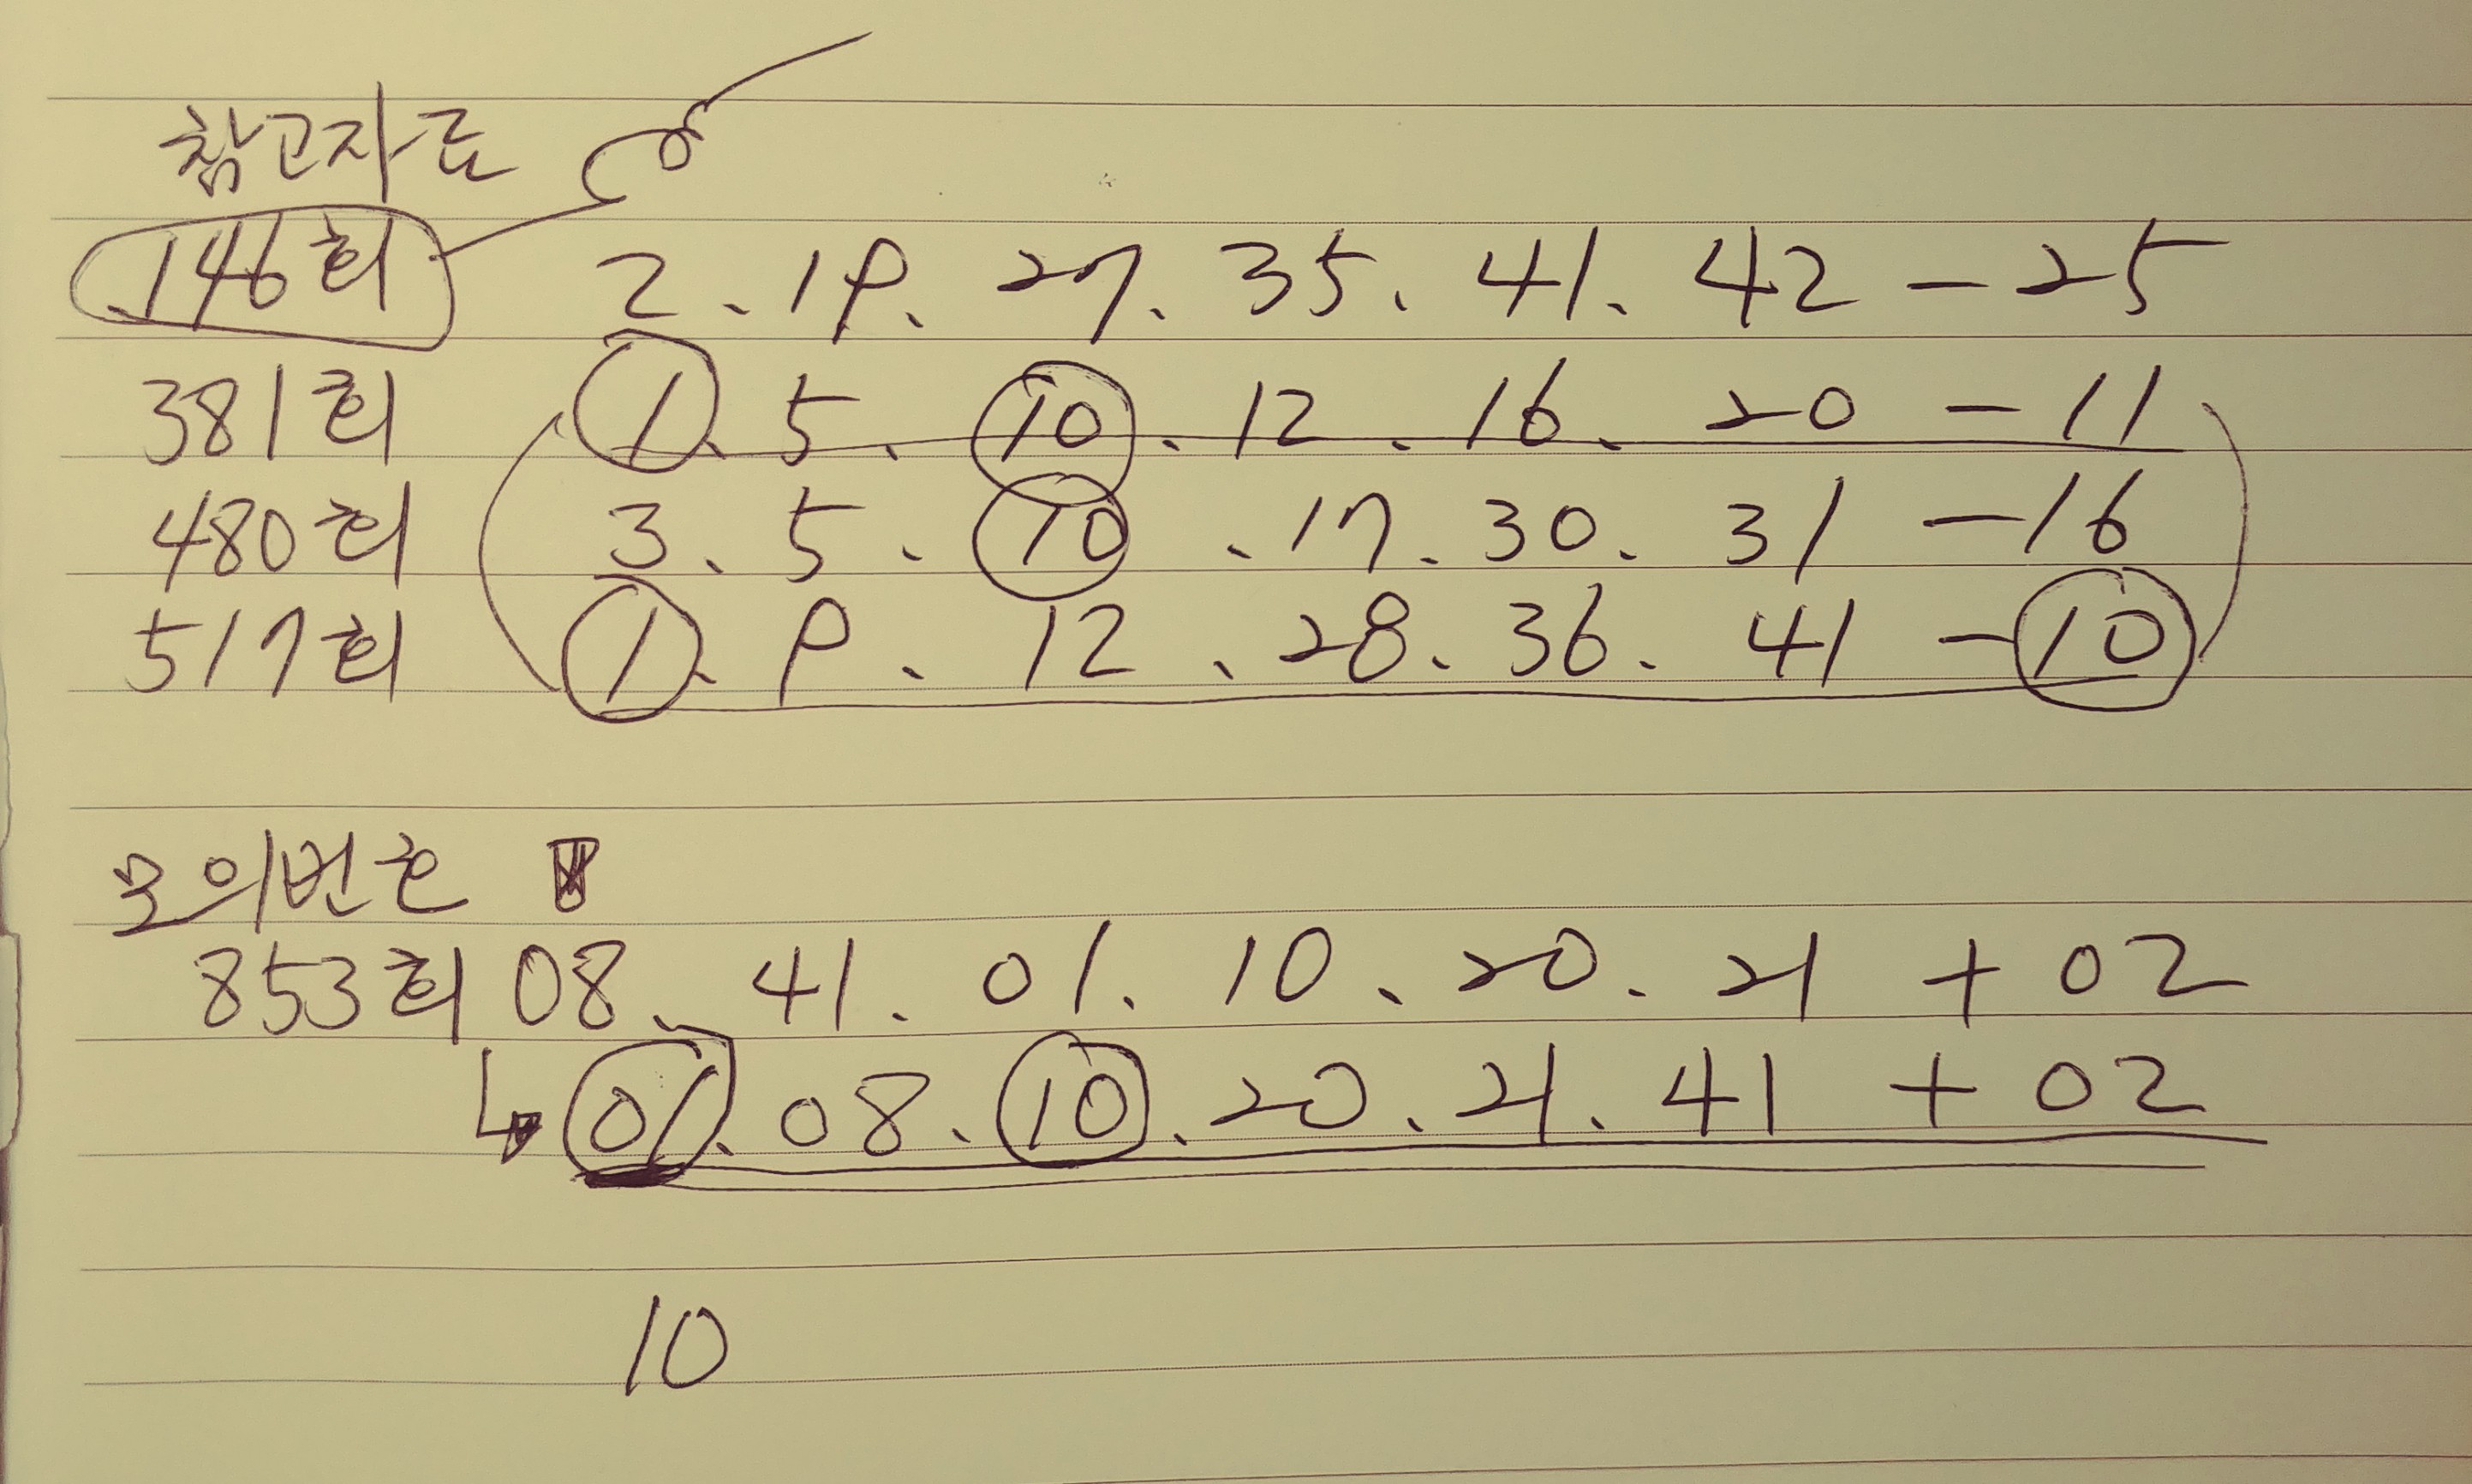 참고자료
146회 2. 19. 27. 35. 41. 42 - 25
381회 1. 5. 10. 12. 16. 20 - 11
480회 3. 5. 10. 17. 30. 31 - 16
517회 1. 9. 12. 28. 36. 41 - 10
모의번호
853회 08. 41. 01. 10. 20. 21 + 02
01. 08. 10. 20. 21. 41 + 02
10